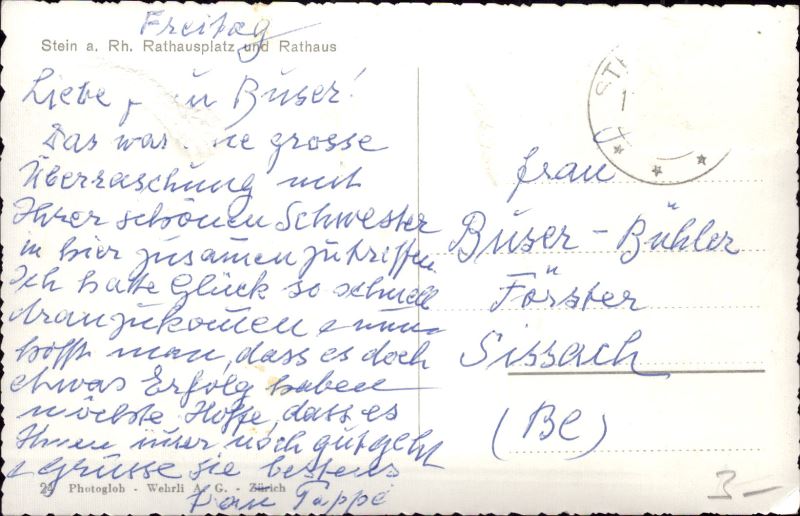 Freitag
Stein a. Rh. Rathausplatz und Rathaus
Liebe Buser!
Das war grosse
Überraschung mit
Ihrer schönen Schwester
in hier zusamenzutreffen
Ich hatte Glück so schnell
dranzukomen & nun
hofft man, dass es doch
etwas Erfolg haben
möchte Hoffe, dass es
Ihnen imer noch gut geht
& Grüsse sie bestens
Frau Tappe
24 Photoglob - Wehrli A. G. - Zürich
ST
Frau
Buser - Bühler
Förster
Sissach
(Be)
3-